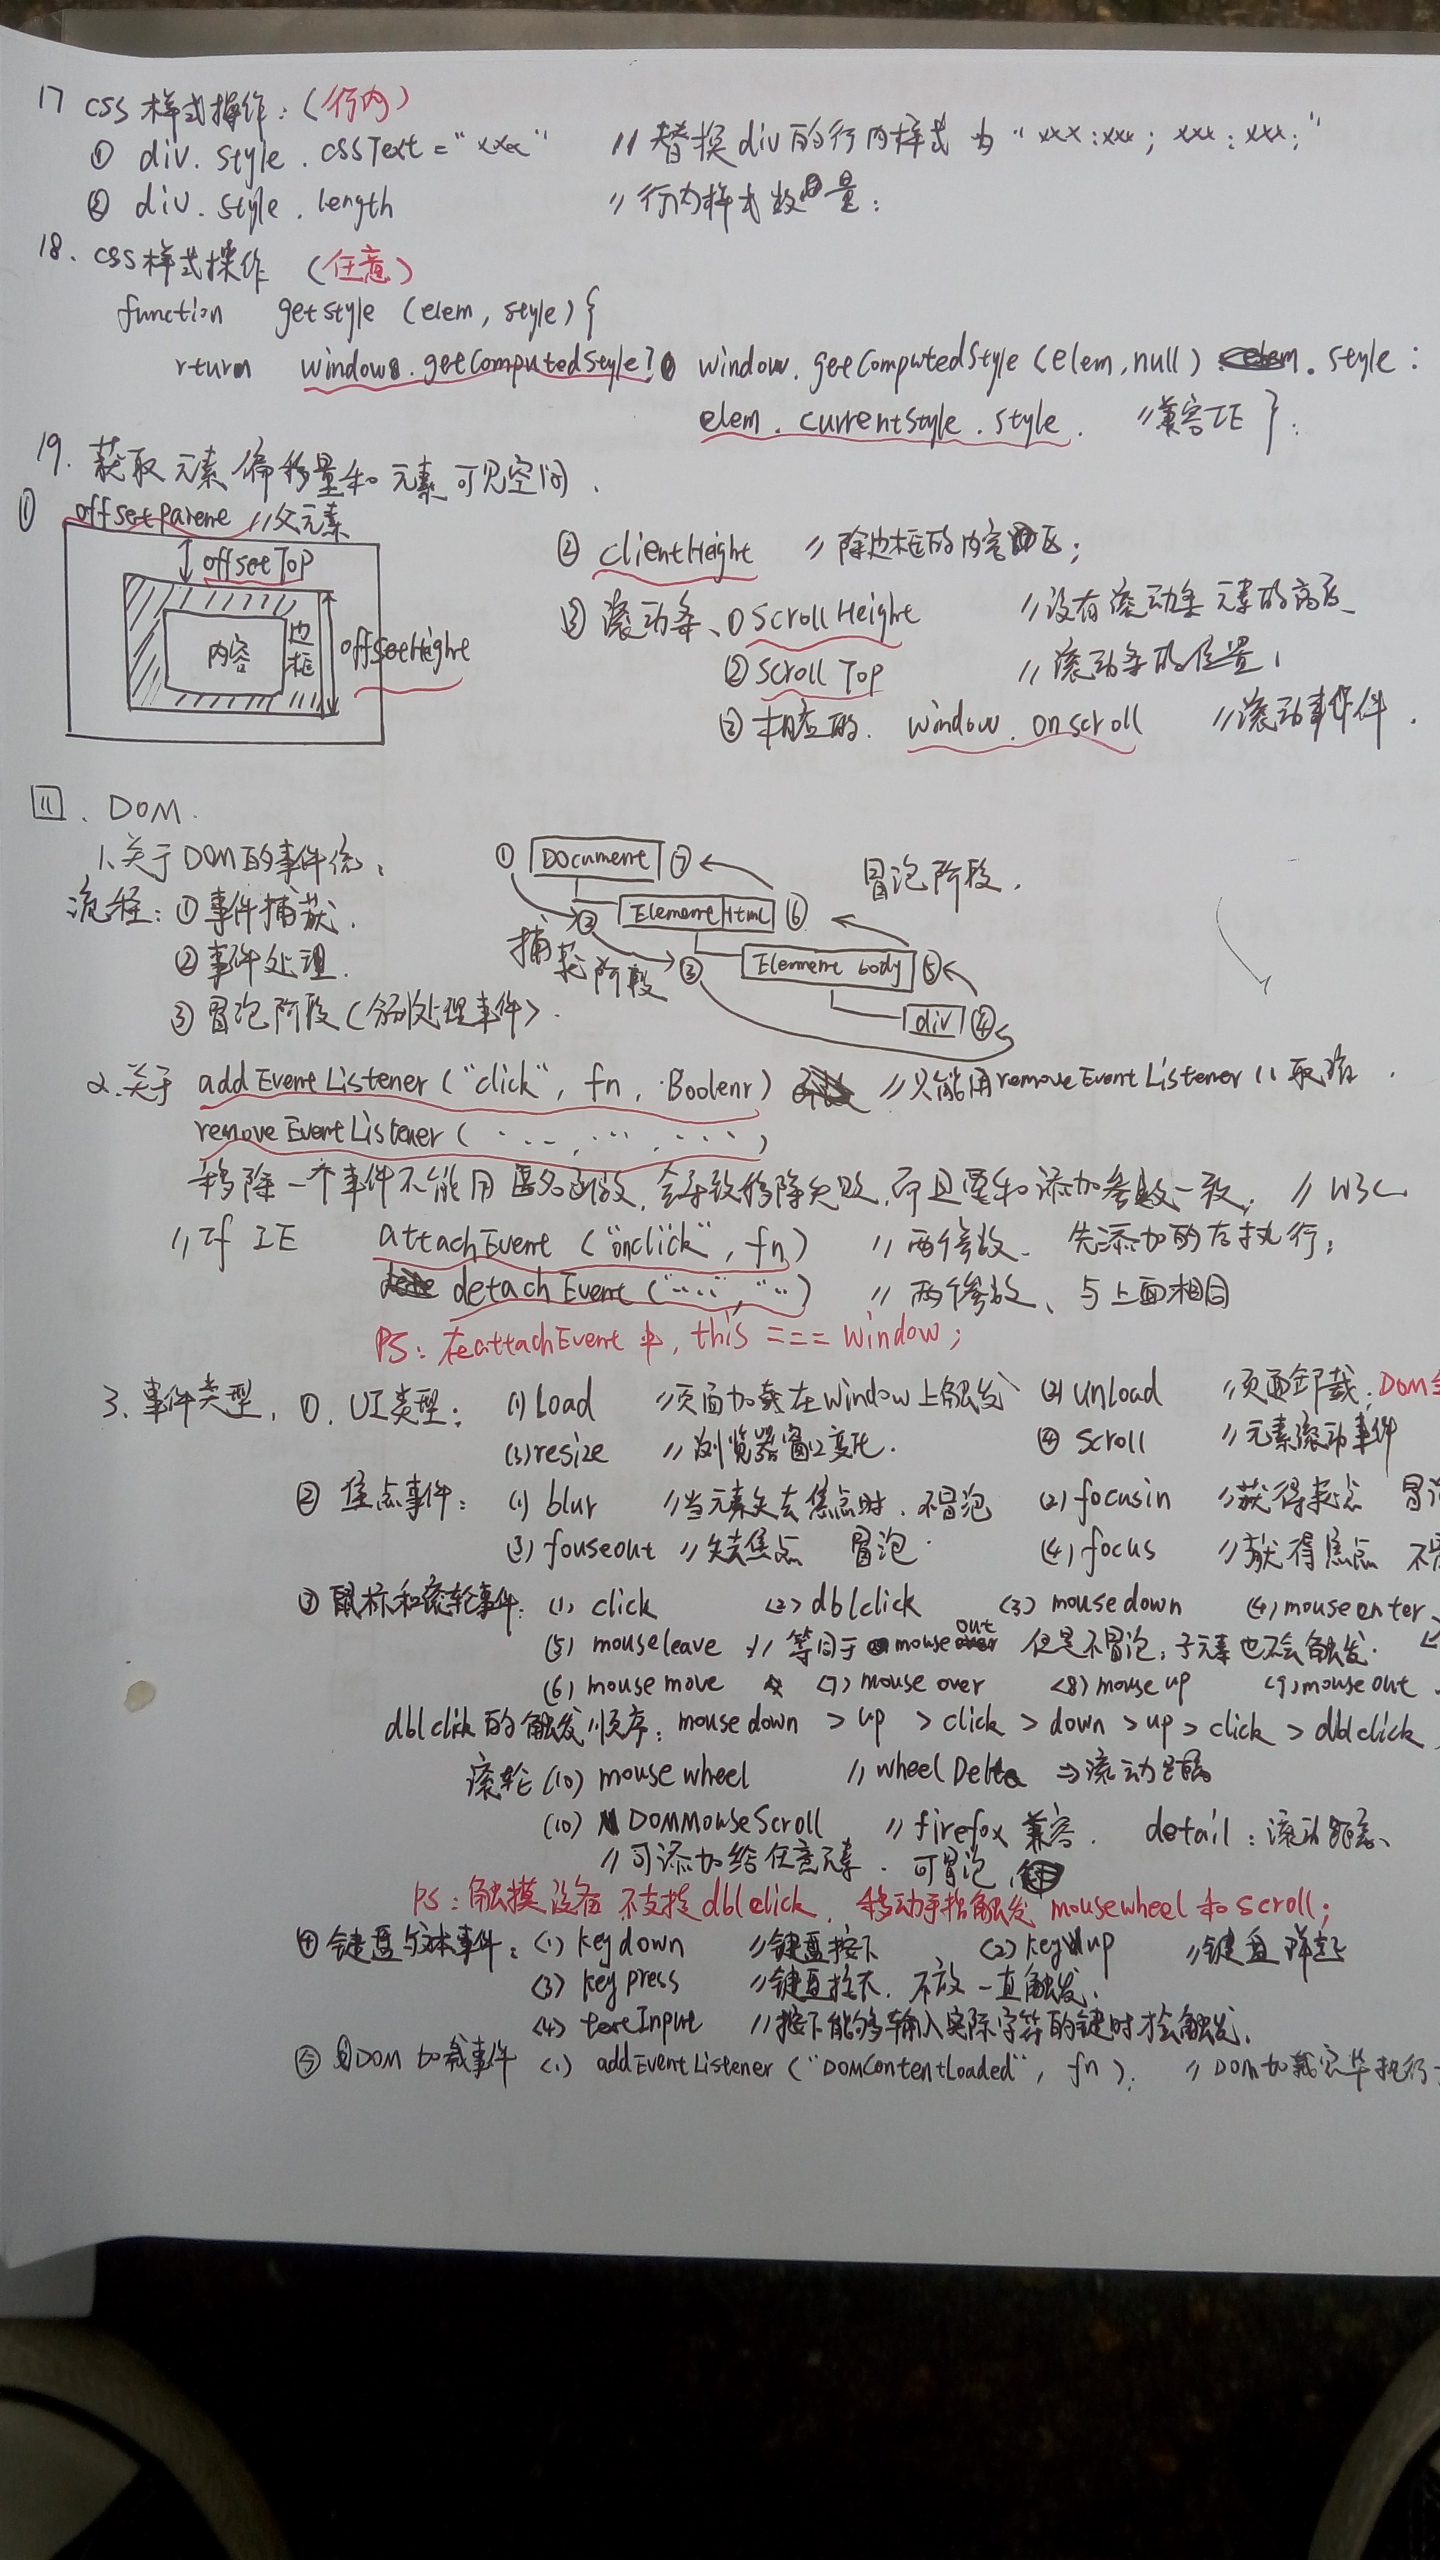 17 CSS 样式操作：（行内）
① div. style . cssText = "xxx" // 替换div的行内样式 为 " xxx : xxx ; xxx : xxx ; "
② div. style . length // 行内样式数量；
18. css样式操作 （任意）
function getstyle (elem, style) {
rturn window. getComputedStyle? window. getComputedStyle (elem, null) . style :
elem . currentStyle . style . // 兼容IE } ;
19. 获取元素偏移量和元素可见空间 .
① offsetParent // 父元素
offsetTop
内容
边框
offsetHeight
② clientHeight // 除边框的内容区；
③ 滚动条、① ScrollHeight // 没有滚动条 元素的高度
② Scroll Top // 滚动条的位置；
③ 相应的. window. onscroll // 滚动事件 .
二 . DOM .
1. 关于DOM的事件流；
流程：① 事件捕获.
② 事件处理.
③ 冒泡阶段（处理事件）.
① Document ⑦
② Element Html ⑥
③ Element body ⑤
div ④
捕获阶段
冒泡阶段 .
2. 关于 addEventListener ("click", fn , Boolenr) // 只能用removeEventListener()取消 .
removeEventListener ( ... , ... , .... )
移除一个事件不能用匿名函数, 会导致移除失败, 而且要和添加参数一致； // W3C
// If IE attachEvent ("onclick", fn) // 两个参数、先添加的后执行；
detachEvent ("....", "..") // 两个参数、与上面相同
PS：在attachEvent中, this === window ;
3、事件类型. ①. UI类型： (1) load // 页面加载在window上触发 (2) unload // 页面卸载；DOM
(3) resize // 浏览器窗口变化. ④ scroll // 元素滚动事件
② 焦点事件： (1) blur // 当元素失去焦点时. 不冒泡 (2) focusin // 获得焦点 冒泡
(3) fouseout // 失去焦点 冒泡. (4) focus // 获得焦点 不冒
③ 鼠标和滚轮事件： (1) click (2) dblclick (3) mousedown (4) mouseenter
(5) mouseleave // 等同于 mouse out 但是不冒泡；子元素也不会触发.
(6) mouse move (7) mouse over (8) mouse up (9) mouse out .
dblclick的触发顺序：mouse down > up > click > down > up > click > dblclick
滚轮 (10) mouse wheel // wheel Delta ⇒ 滚动距离
(10) DOMMouseScroll // firefox 兼容 . detail : 滚动距离、
// 可添加给任意元素 . 可冒泡
PS：触摸设备 不支持 dblclick . 移动手指触发 mousewheel 和 scroll ;
④ 键盘与文本事件： (1) keydown // 键盘按下 (2) keyup // 键盘弹起
(3) keypress // 键盘按下. 不放一直触发.
(4) textInput // 按下能够输入实际字符的键时才会触发.
⑤ DOM 加载事件 (1) addEventListener ("DOMContentLoaded", fn ) ; // DOM加载完毕执行